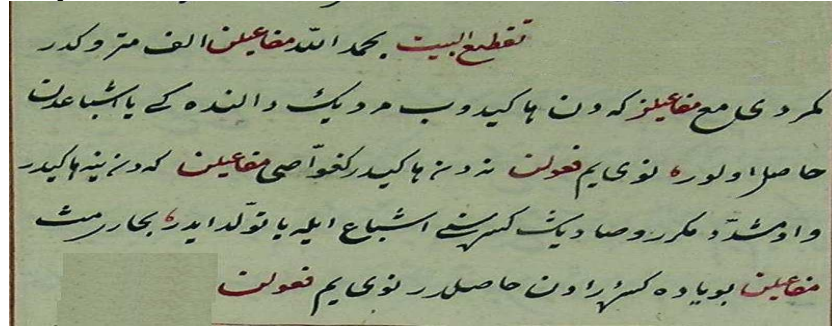 تقطيع البيت بحمد الله مفاعيلن الف متروكدر
كه دن ها كيدوب مرديك دالنده كى يا اشباعدن مفاعيلن
حاصل اولور نوى يم فعولن ها كيدر كغواصى مفاعيلن ها كيدر
واو مشدد مكرر وصاديك كسره سنى اشباع ايله يا تولد ايدر بحارى مث
مفاعيلن بو ياده كسره دن حاصلدر نوى يم فعولن